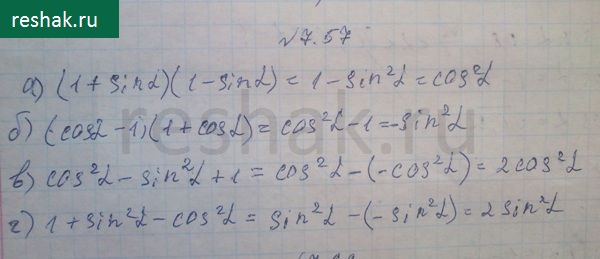 reshak.ru
№7.57
а) (1 + sinα)(1 - sinα) = 1 - sin²α = cos²α
б) (cosα - 1)(1 + cosα) = cos²α - 1 = -sin²α
в) cos²α - sin²α + 1 = cos²α - (-cos²α) = 2cos²α
г) 1 + sin²α - cos²α = sin²α - (-sin²α) = 2sin²α
reshak.ru